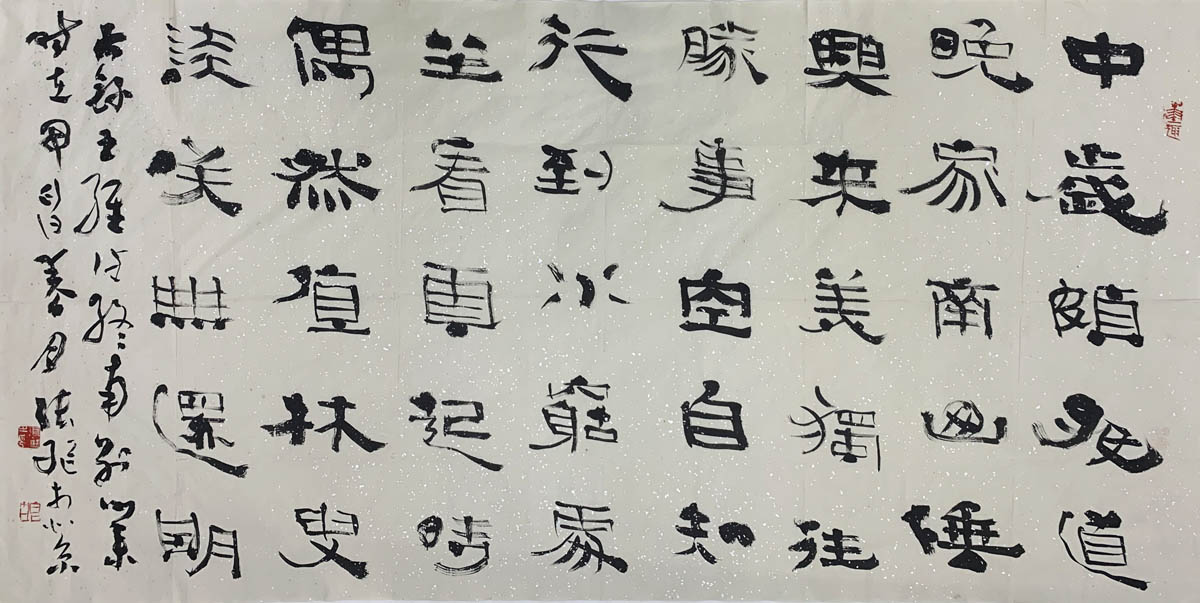 中歲頗好道
晚家南山陲
興来美獨往
勝事空自知
行到水窮處
坐看雲起時
偶然值林叟
談笑無還期
右錄王維詩終南別業
時在甲辰春月於北京